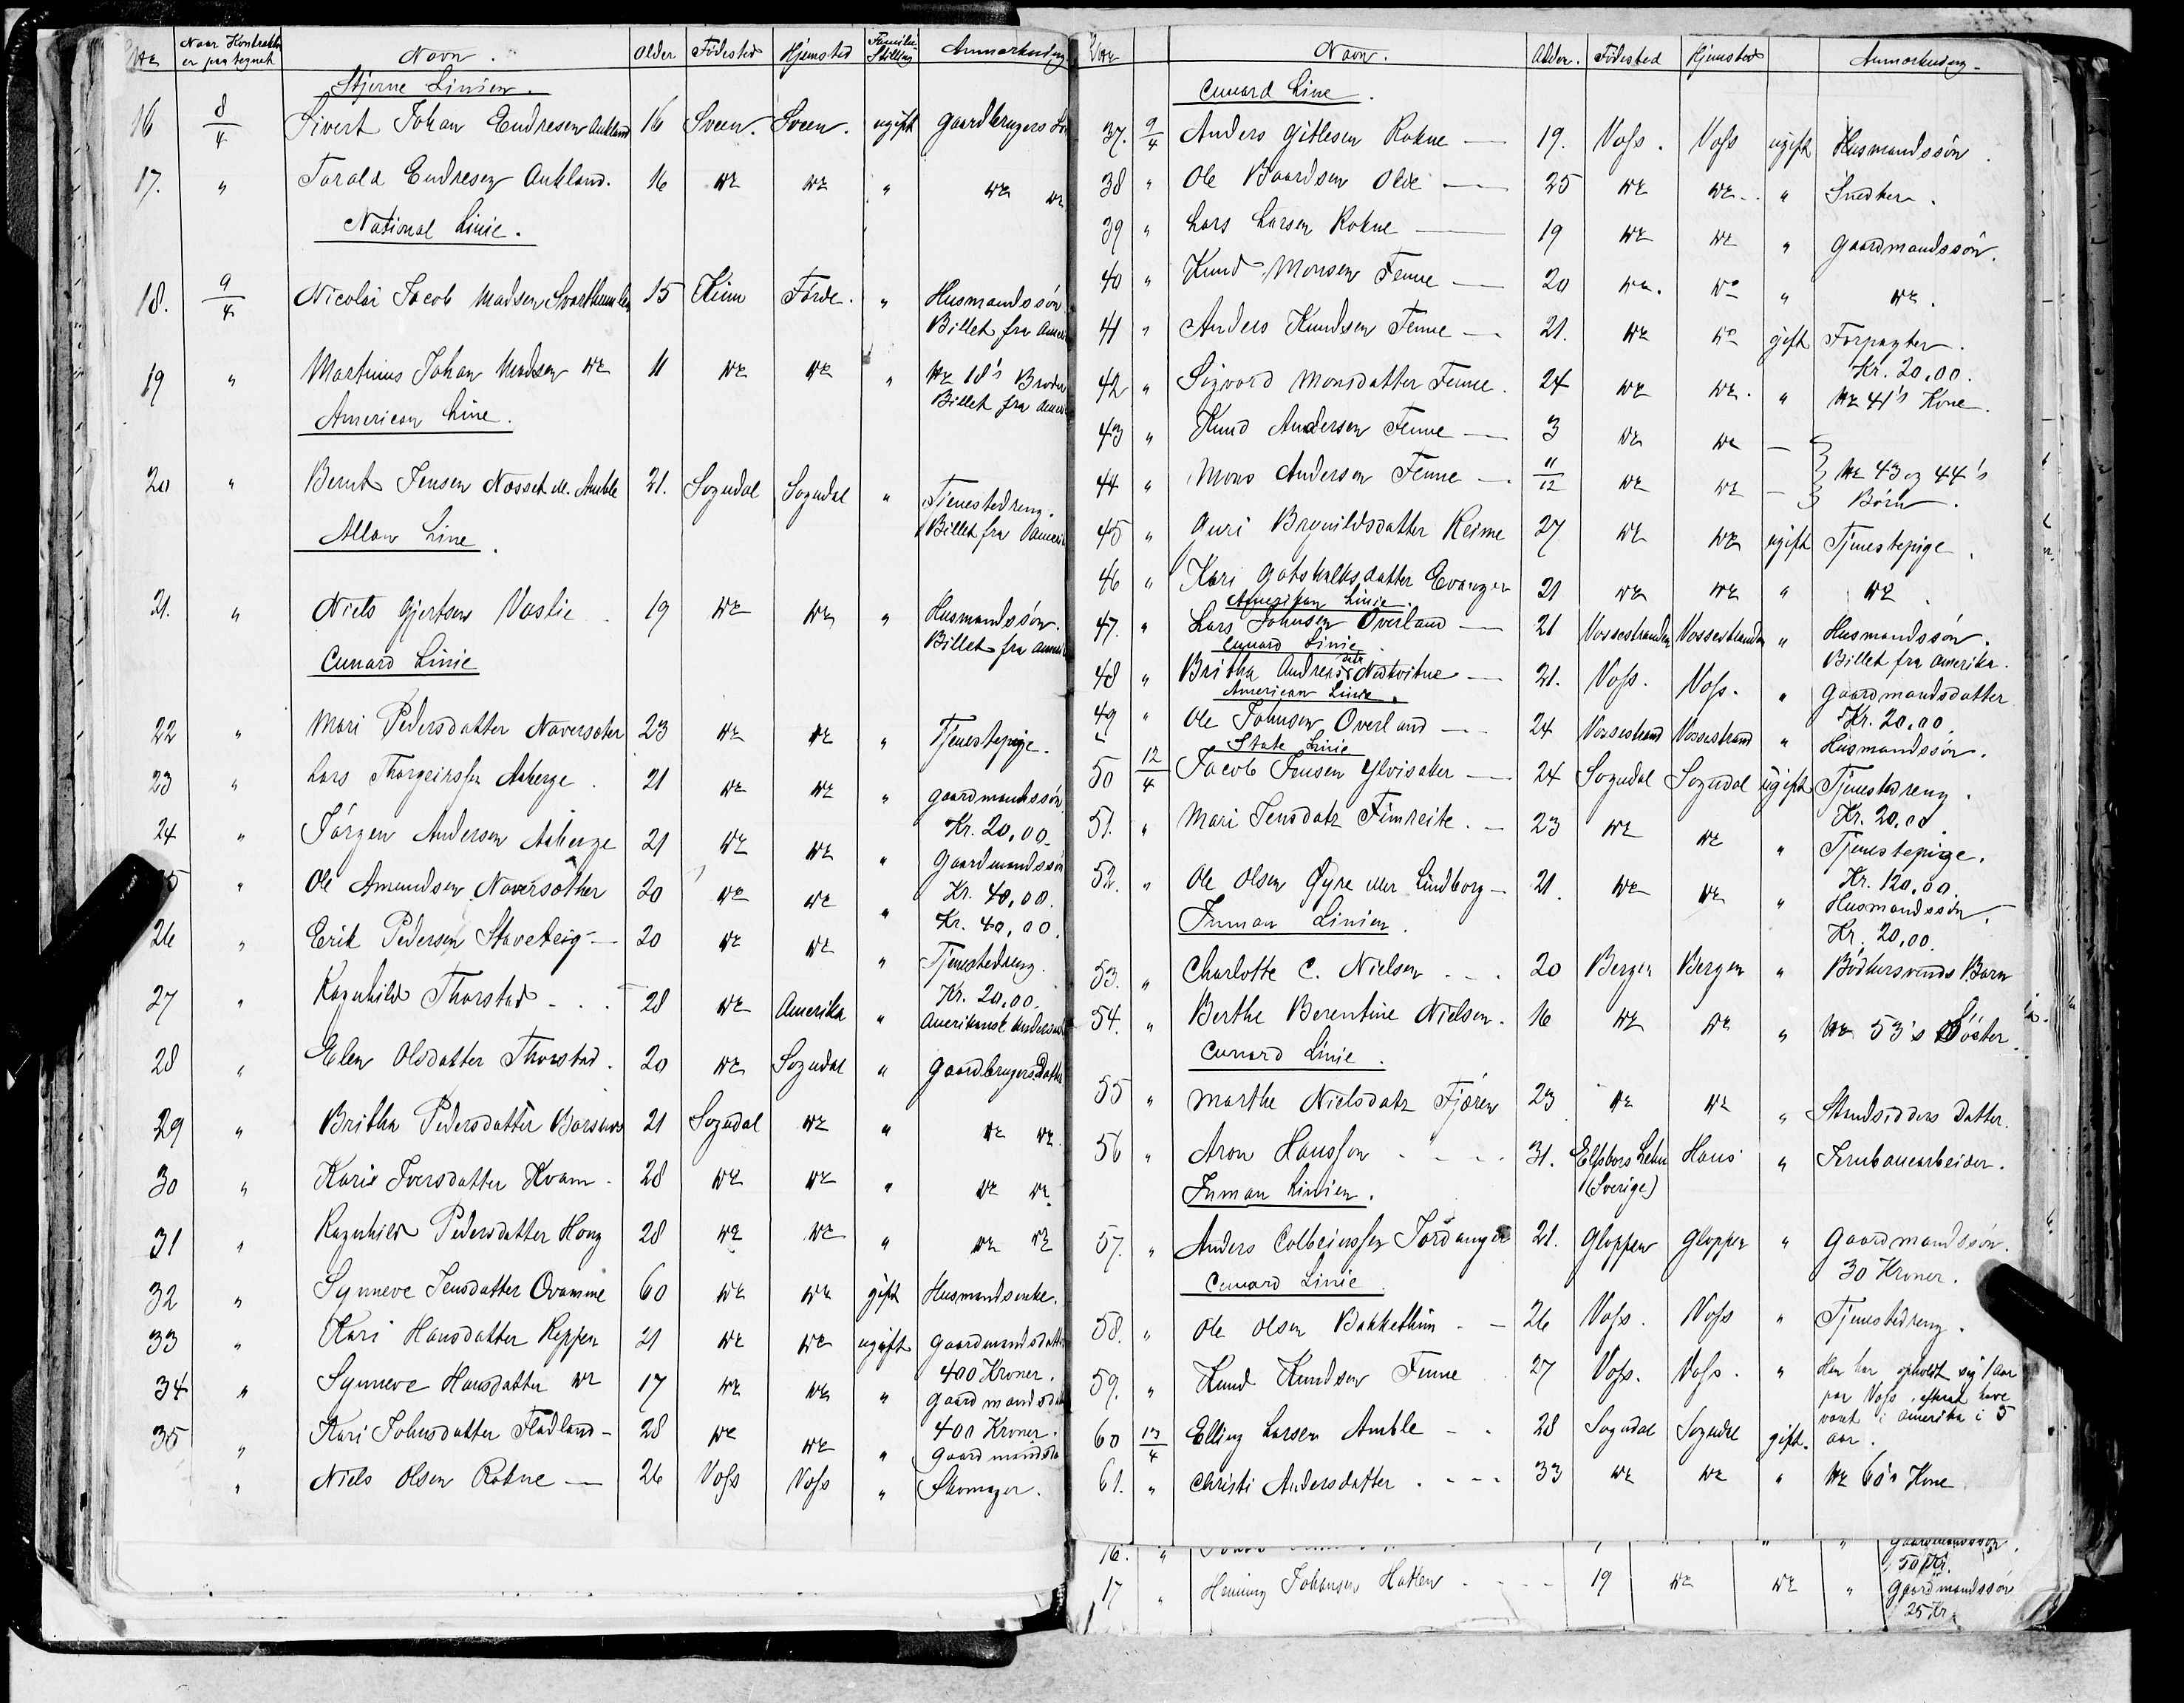 No Naar Kontrakten er paategnet Navn. Alder Födested Hjemsted Familie Stilling Anmærkning
Stjerne Linien.
16 8/4 Sivert Johan Endresen Aukland 16 Sveen. Sveen. ugift Gaardbrugers
17. " Torald Endresen Aukland. 16 do do " do do
National Linie.
18. 9/4 Nicolai Jacob Madsen 15 Kinn Förde. " Husmandssön
Billet fra
19 " Martinus Johan Madsen do 11 do do " No 18's
Billet fra
American Line.
20 " Bernt Jensen Nosset ell. Amble 21. Sogndal Sogndal " Tjenestedreng.
Billet fra
Allan Line.
21. " Niels Gjertsen Vaslie 19 do do " Husmandssön.
Billet fra
Cunard Linie
22 " Mari Pedersdatter Naversæter 23 do do " Tjenestepige.
23 " Lars Thorgeirssen Aaberge. 21 do do " Gaardmandssön
Kr. 20,00.
24 " Jörgen Andersen Aaberge 21 do do " Gaardmandssön
Kr. 40,00.
" Ole Amundsen Naversöther 20 do do "
Kr. 40,00.
26 " Erik Pedersen Staveteig - 20 do do " Tjenestedreng.
Kr. 20,00.
27 " Ragnhild Thorstad - 28 do Amerika " Amerikansk
28 " Elen Olsdatter Thorstad. 20 do Sogndal " Gaardbrugers Datter
29 " Britha Pedersdatter 21 Sogndal do " do do
30 " Kari Iversdatter Kvam. 28 do do " do do
31 " Ragnhild Pedersdatter Houg 28 do do " do do
32 " Synneve Jensdatter Ovamme 60 do do gift Husmandsenke.
33 " Kari Hansdatter Reppen 21 do do ugift Gaardmandsdatter
400 Kroner.
34 " Synneve Hansdatter do 17 do do "
400 Kroner.
35 " Kari Johnsdatter Fladland - 28 do do "
" Niels Olsen Rokne - 26 Voss Voss " Skomager.
No Navn. Alder. Födested Hjemsted Anmærkning.
Cunard Line.
37. 9/4 Anders Gitlesen Rokne - 19. Voss. Voss ugift Husmandssön.
38 " Ole Baardsen Olde - 25 do do " Snedker.
39 " Lars Larsen Rokne - 19 do do " Gaardmandssön.
40 " Knud Monsen Fenne - 20 do. do " do.
41 " Anders Knudsen Fenne - 21. do do gift Forpagter.
Kr. 20,00.
42 " Sigvord Monsdatter Fenne. 24 do do. " No 41's Kone.
43 " Knud Andersen Fenne - 3 do do -
44 " Mons Andersen Fenne - 11/12 do do - No 43 og 44's
Börn.
45 " Guri Brynildsdatter Reime 27 do do ugift Tjenestepige.
46 " Kari Gotskalksdatter Evanger 21 do do " do.
Amerikan Linie.
47. " Lars Johnsen Överland - 21 Vossestranden Vossestranden " Husmandssön.
Billet fra Amerika.
Cunard Linie
48 " Britha Andreasdtr Nedkvitne - 21. Voss. Voss. " Gaardmandsdatter
Kr. 20,00.
American Linie.
49 " Ole Johnsen Överland - 24 Vossestrand Vossestrand " Husmandssön.
State Linie
50 12/4 Jacob Jensen Ylvisaker - 24 Sogndal Sogndal ugift Tjenestedreng.
Kr. 20,00
51. " Mari Jensdatr Fimreite. - 23 do do " Tjenestepige.
Kr. 120,00.
52. " Ole Olsen Öyre eller Lindborg - 21. do do " Husmandssön.
Kr. 20,00.
Inman Linien.
53. " Charlotte C. Nielsen - - 20 Bergen Bergen " Bödkersvends Barn
54. " Berthe Berentine Nielsen. 16 do do " No 53's Söster.
Cunard Linie.
55 " Marthe Nielsdatr Fjæren 23 do do " Strandsidders Datter.
56 " Aron Hansson - - - 31. Elfsborg Lehn Haus " Jernbanearbeider.
(Sverige)
Inman Linien.
57. " Anders Colbeinssen 21. Gloppen Gloppen " Gaardmandssön.
30 Kroner.
Cunard Linie.
58. " Ole Olsen Bakkethun - - 26 Voss. Voss " Tjenestedreng.
59. " Knud Knudsen Fenne 27 Voss. Voss. " Han har opholdt sig 1 Aar
paa Voss, efterat have
været i Amerika i 5
Aar.
60 13/4 Elling Larsen Amble - . 28 Sogndal Sogndal gift.
61. " Christi Andersdatter. - - - 33 do do " No 60's Kone.
16. " Gaardmandssön.
50 Kr.
17 " Henning Johansen Hatlen - - 19 do do " Gaardmandssön
25 Kr.